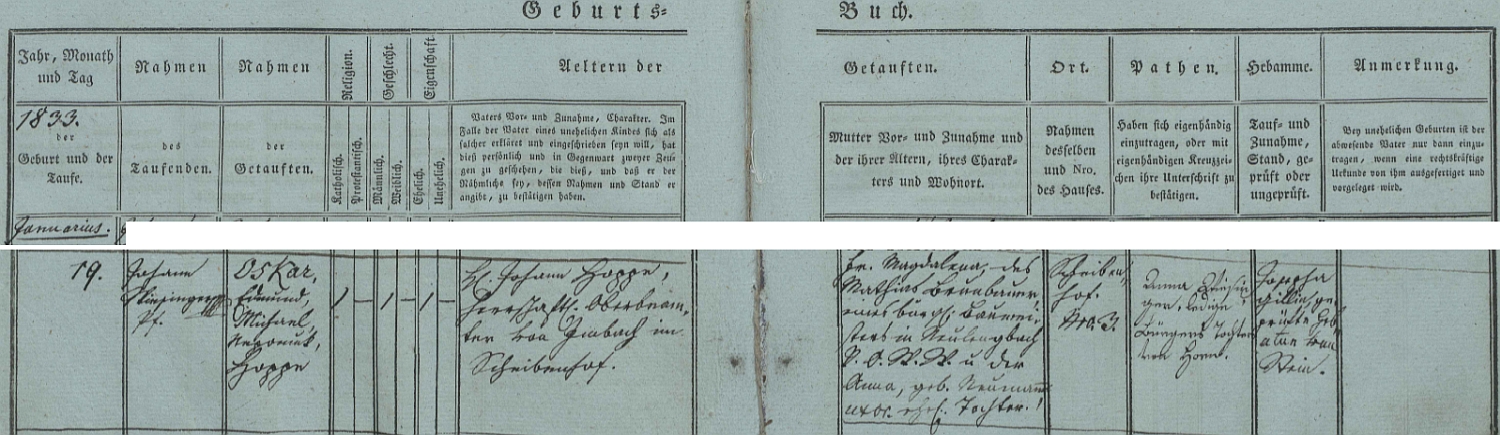 Geburts-
Buch.
Jahr, Monath
und Tag
1833.
der
Geburt und der
Taufe.
Nahmen
des
Taufenden.
Nahmen
der
Getauften.
Religion.
Katholisch.
Protestantisch.
Geschlecht.
Männlich.
Weiblich.
Eigenschaft.
Ehelich.
Unehelich.
Aeltern der
Vaters Vor- und Zunahme, Charakter. Im
Falle der Vater eines unehelichen Kindes sich als
solcher erklärt und eingeschrieben seyn will, hat
dieß persönlich und in Gegenwart zweyer Zeu-
gen zu geschehen, die dieß, und daß er der
Nähmliche sey, dessen Nahmen und Stand er
angibt, zu bestätigen haben.
Getauften.
Mutter Vor- und Zunahme und
der ihrer Altern, ihres Charak-
ters und Wohnort.
Ort.
Nahmen
desselben
und Nro.
des Hauses.
Pathen.
Haben sich eigenhändig
einzutragen, oder mit
eigenhändigen Kreuzzei-
chen ihre Unterschrift zu
bestätigen.
Hebamme.
Tauf- und
Zunahme,
Stand, ge-
prüft oder
ungeprüft.
Anmerkung.
Bey unehelichen Geburten ist der
abwesende Vater nur dann einzu-
tragen, wenn eine rechtskräftige
Urkunde von ihm ausgefertiget und
vorgeleget wird.
Januarius.
19.
Johann
Pf.
Oskar,
Edmund,
Michael,
Nepomuk,
Hoppe
1 — 1 — 1 —
H. Johann Hoppe,
Herrschaftl. Oberbeam-
ter von Imbach im
Scheibenhof.
Fr. Magdalena, des
Mathias Brunbauer,
eines bürgl. Baumei-
sters in Neulengbach
V. O. W. W. u der
Anna, geb. Neumann
uxor. ehel. Tochter.
Scheiben-
hof.
Nro. 3.
Anna
ledige
Bürgers Tochter
von Horn.
Josepha
ge-
prüfte Heb-
von
Stein.